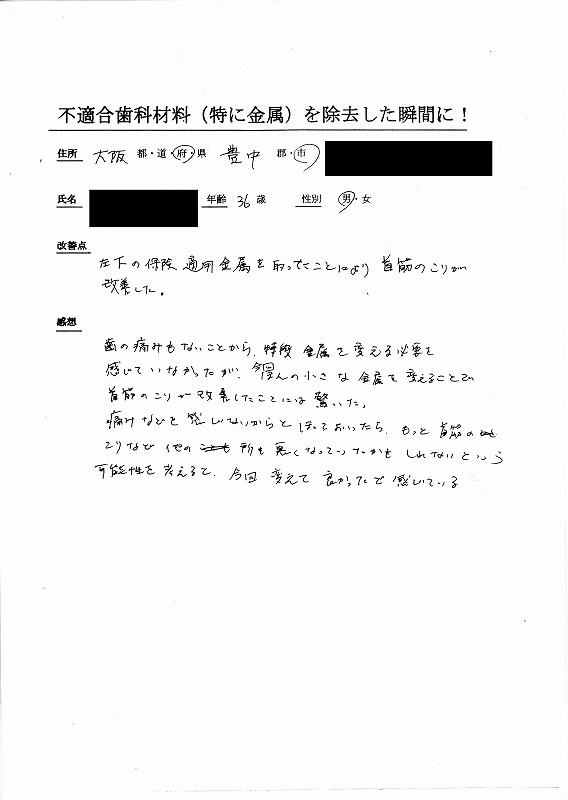 不適合歯科材料（特に金属）を除去した瞬間に！
住所 大阪 都・道・府・県 豊中 郡・市
氏名 年齢 36 歳 性別 男・女
改善点
左下の保険適用金属を取ったことにより首筋のこりが
改善した。
感想
歯の痛みもないことから、特段金属を変える必要を
感じていなかったが、今回の小さな金属を変えることで
首筋のこりが改善したことには驚いた。
痛みなどを感じないからとほっておいたら、もっと首筋の
こりなど他の所も悪くなっていったかもしれないという
可能性を考えると、今回変えて良かったと感じている